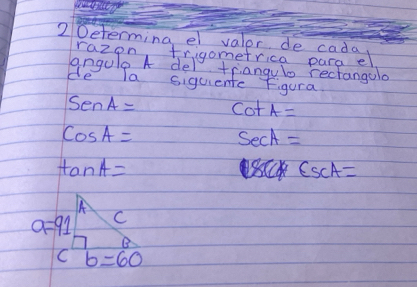 2 Determina el valor de cada
razon trigometrica para el
angulo A del triangulo rectangulo
de la siguiente figura.
SenA=
Cot A=
CosA=
SecA=
tanA=
CscA=
A
a=91
C
B
C b=60